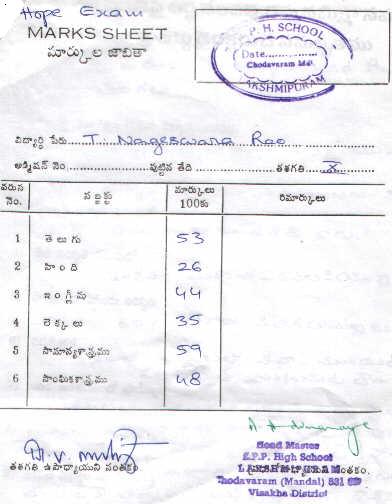 Hope Exam
MARKS SHEET
మార్కుల జాబితా
P. H. SCHOOL
Date
Chodavaram Mdl.
LAKSHMIPURAM
విద్యార్థి పేరు T. Nageswara Rao
అడ్మిషన్ నెం. పుట్టిన తేది తరగతి X
వరుస నెం. సబ్జెక్టు మార్కులు 100కు రిమార్కులు
1 తెలుగు 53
2 హింది 26
3 ఇంగ్లీషు 44
4 లెక్కలు 35
5 సామాన్యశాస్త్రము 59
6 సాంఘికశాస్త్రము 48
తరగతి ఉపాధ్యాయుని సంతకం. సంతకం.
Head Master
Z.P.P. High School
LAKSHMIPURAM
Chodavaram (Mandal) 531
Visakha District